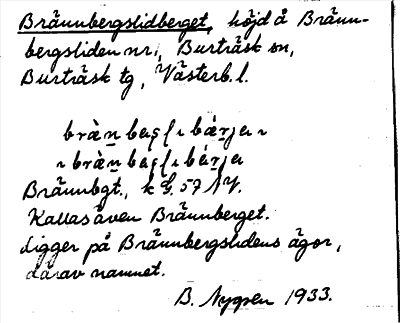 Brännbergslidberget, höjd å Bränn-
bergsliden nr 1, Burträsk sn,
Burträsk tg, Västerb. l.
Brännbgt., k G. 57 NV.
Kallas även Brännberget.
Ligger på Brännbergslidens ägor,
därav namnet.
B. Nygren 1933.